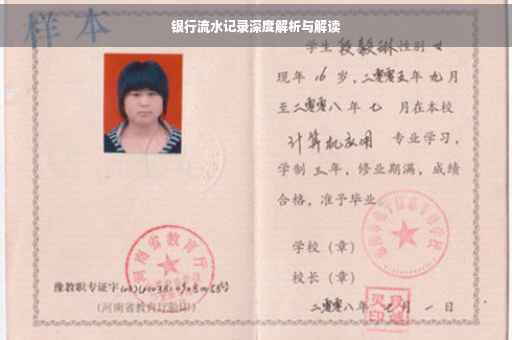 银行流水记录深度解析与解读
样本
学生 段毅琳 性别 女
现年 16 岁，二零零五年 九 月
至二零零八年 七 月在本校
计算机应用 专业学习，
学制 三 年，修业期满，成绩
合格，准予毕业。
学校（章）
校长（章）
二零零八年 七 月 一 日
河南省教育厅
豫教职专证字
（河南省教育厅验印）